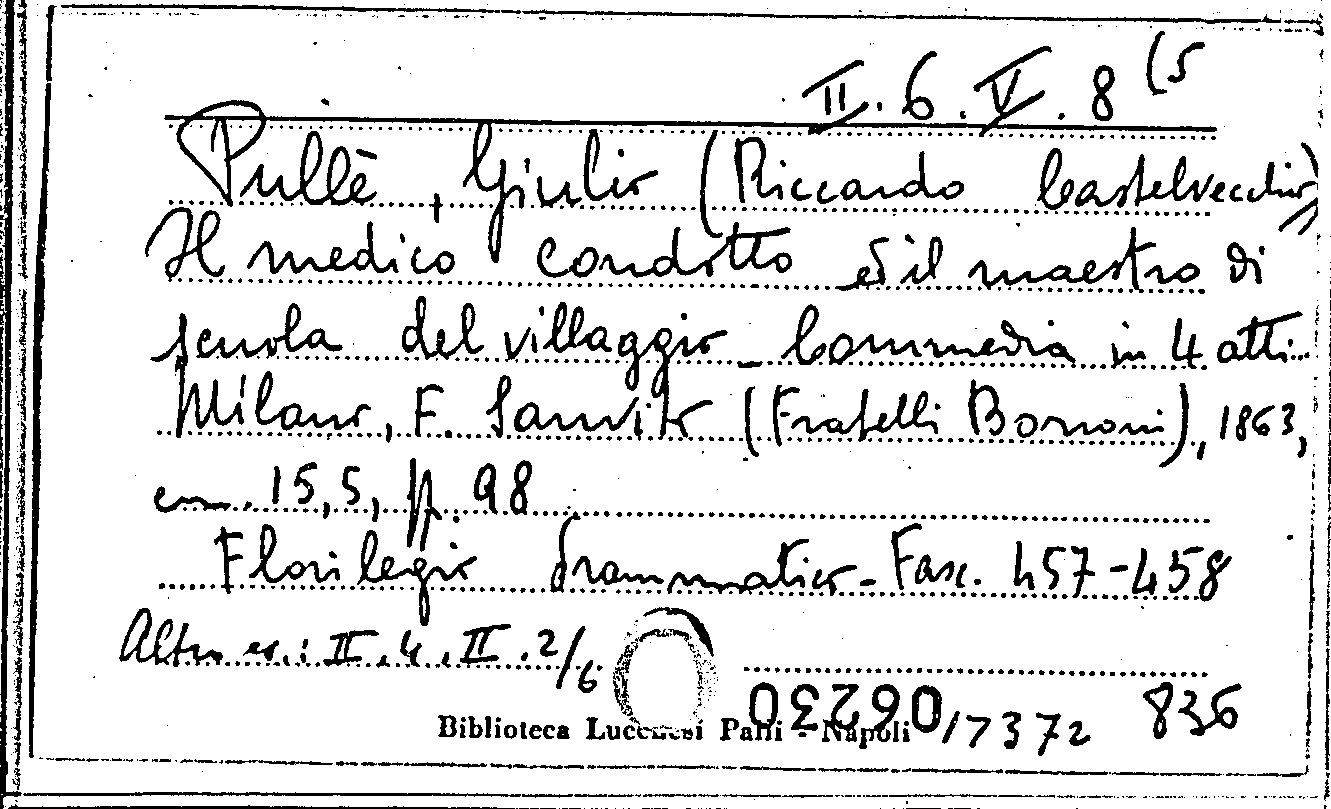 II.6.V.8 (5
Pullè, Giulio (Riccardo Castelvecchio)
Il medico condotto ed il maestro di
scuola del villaggio - Commedia in 4 atti..
Milano, F. Sanvito (Fratelli Borroni), 1863,
cm. 15,5, pp. 98
Florilegio drammatico - Fasc. 457-458
Altro es.: II.4.II.2/6
06230/7372 836
Biblioteca Lucchesi Palli - Napoli